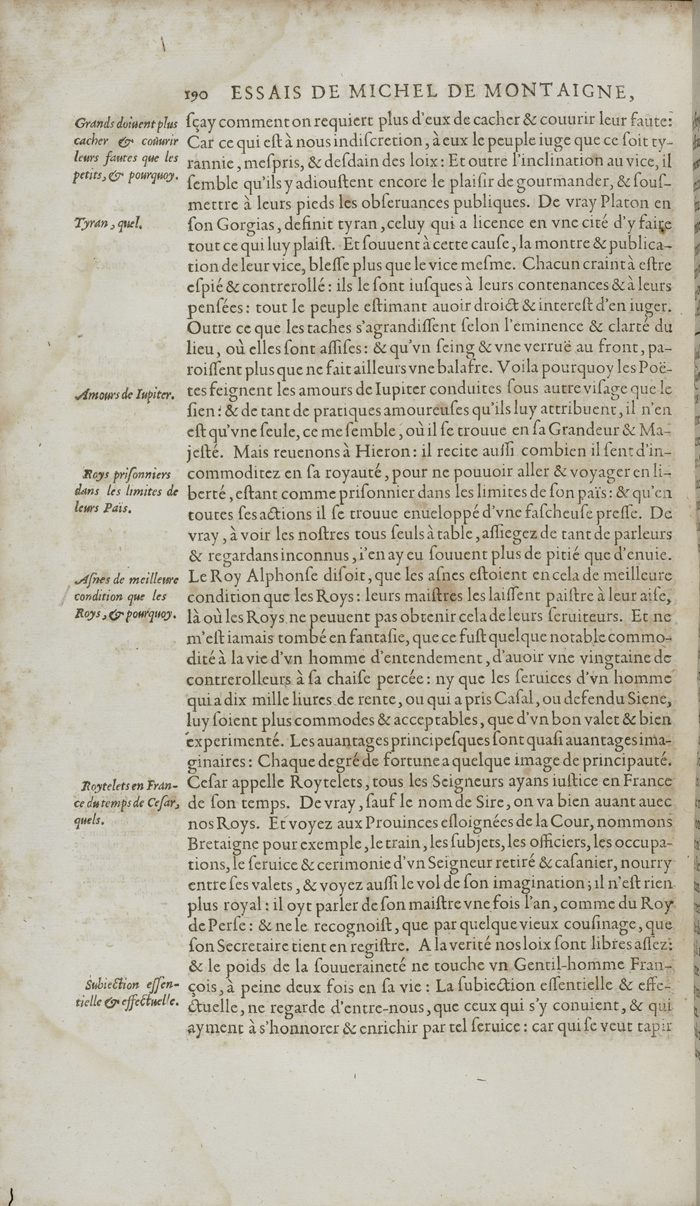 190 ESSAIS DE MICHEL DE MONTAIGNE,
Grands doiuent plus
cacher & coũurir
leurs fautes que les
petits, & pourquoy.
Tyran, quel.
Amours de Iupiter.
Roys prisonniers
dans les limites de
leurs Païs.
Asnes de meilleure
condition que les
Roys, & pourquoy.
Roytelets en Fran-
ce du temps de Cesar,
quels.
Subiection essen-
tielle & effectuelle.
sçay comment on requiert plus d'eux de cacher & couurir leur faute:
Car ce qui est à nous indiscretion, à eux le peuple iuge que ce soit ty-
rannie, mespris, & desdain des loix: Et outre l'inclination au vice, il
semble qu'ils y adioustent encore le plaisir de gourmander, & sous-
mettre à leurs pieds les obseruances publiques. De vray Platon en
son Gorgias, definit tyran, celuy qui a licence en vne cité d'y faire
tout ce qui luy plaist. Et souuent à cette cause, la montre & publica-
tion de leur vice, blesse plus que le vice mesme. Chacun craint à estre
espié & contrerollé: ils le sont iusques à leurs contenances & à leurs
pensées: tout le peuple estimant auoir droict & interest d'en iuger.
Outre ce que les taches s'agrandissent selon l'eminence & clarté du
lieu, où elles sont assises: & qu'vn seing & vne verruë au front, pa-
roissent plus que ne fait ailleurs vne balafre. Voila pourquoy les Poë-
tes feignent les amours de Iupiter conduites sous autre visage que le
sien: & de tant de pratiques amoureuses qu'ils luy attribuent, il n'en
est qu'vne seule, ce me semble, où il se trouue en sa Grandeur & Ma-
jesté. Mais reuenons à Hieron: il recite aussi combien il sent d'in-
commoditez en sa royauté, pour ne pouuoir aller & voyager en li-
berté, estant comme prisonnier dans les limites de son païs: & qu'en
toutes ses actions il se trouue enueloppé d'vne fascheuse presse. De
vray, à voir les nostres tous seuls à table, assiegez de tant de parleurs
& regardans inconnus, i'en ay eu souuent plus de pitié que d'enuie.
Le Roy Alphonse disoit, que les asnes estoient en cela de meilleure
condition que les Roys: leurs maistres les laissent paistre à leur aise,
là où les Roys ne peuuent pas obtenir cela de leurs seruiteurs. Et ne
m'est iamais tombé en fantasie, que ce fust quelque notable commo-
dité à la vie d'vn homme d'entendement, d'auoir vne vingtaine de
contrerolleurs à sa chaise percée: ny que les seruices d'vn homme
qui a dix mille liures de rente, ou qui a pris Casal, ou defendu Siene,
luy soient plus commodes & acceptables, que d'vn bon valet & bien
experimenté. Les auantages principesques sont quasi auantages ima-
ginaires: Chaque degré de fortune a quelque image de principauté.
Cesar appelle Roytelets, tous les Seigneurs ayans iustice en France
de son temps. De vray, sauf le nom de Sire, on va bien auant auec
nos Roys. Et voyez aux Prouinces esloignées de la Cour, nommons
Bretaigne pour exemple, le train, les subjets, les officiers, les occupa-
tions, le seruice & cerimonie d'vn Seigneur retiré & casanier, nourry
entre ses valets, & voyez aussi le vol de son imagination; il n'est rien
plus royal: il oyt parler de son maistre vne fois l'an, comme du Roy
de Perse: & ne le recognoist, que par quelque vieux cousinage, que
son Secretaire tient en registre. A la verité nos loix sont libres assez:
& le poids de la souueraineté ne touche vn Gentil-homme Fran-
çois, à peine deux fois en sa vie: La subiection essentielle & effe-
ctuelle, ne regarde d'entre-nous, que ceux qui s'y conuient, & qui
ayment à s'honnorer & enrichir par tel seruice: car qui se veut tapir